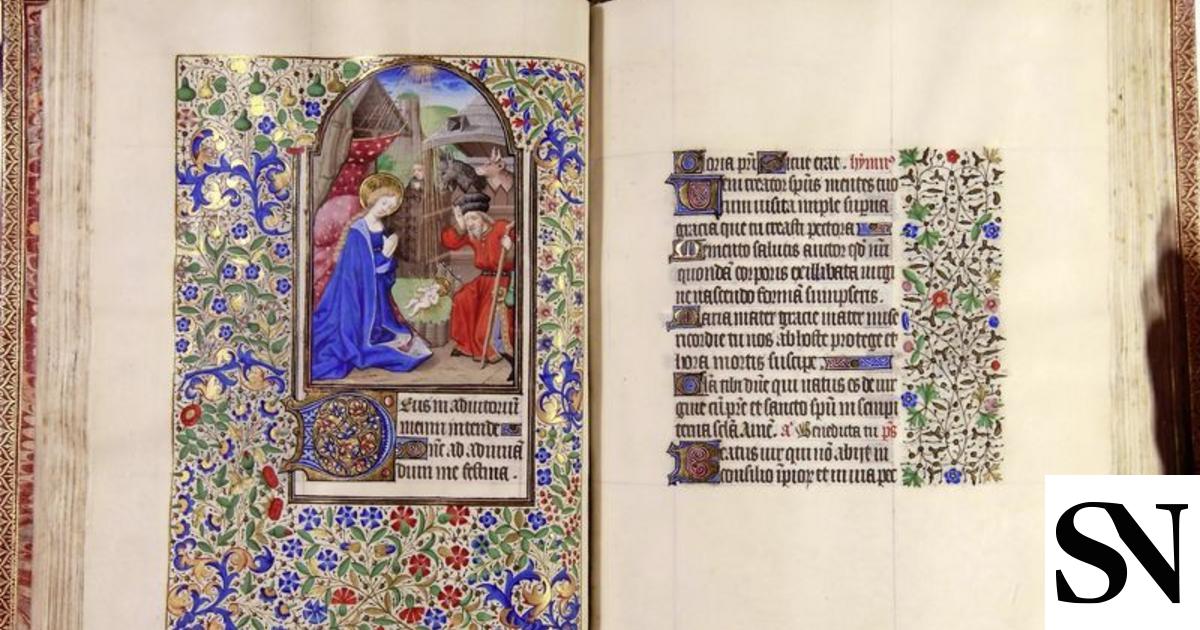 Deus in adiutoriū
meum intende
Dn̄e ad adiuuā
dum me festina .
Gloria pr̄i Sicut erat . hymn⁹
Ueni creator sp̄us mentes tuo
rum uisita imple sup̄na
gracia que tu creasti pectora
Memento salutis auctor qd nr̄i
quondā corporis ex illibata uirgi
ne nascendo formā sumpseris .
Maria mater gracie mater mise
ricordie tu nos ab hoste protege et
hora mortis suscipe
Gl̄a tibi dn̄e qui natus es de uir
gine cū pr̄e et sancto sp̄u in sempi
terna scl̄a Amē. a' Benedicta tu ps̄
Beatus uir qui nō abijt in
consilio ip̄ior et in uia pec
SN